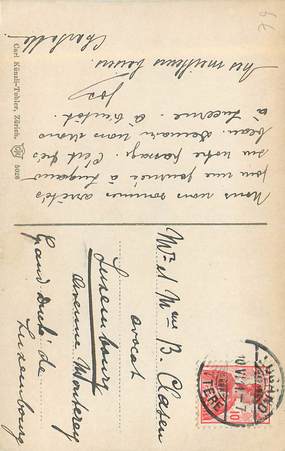 Nous nous sommes arrêtés
pour une journée à Lugano
sur notre passage. C'est très
beau. Demain nous irons
à Lucerne. à bientôt
Jos
mes meilleurs baisers
Charlotte
Carl Künzli-Tobler, Zürich.
5028
Mr et Mme B. Clasen
avocat
Luxembourg
Avenue Monterey
Grand Duché de
Luxembourg
LUGANO
10